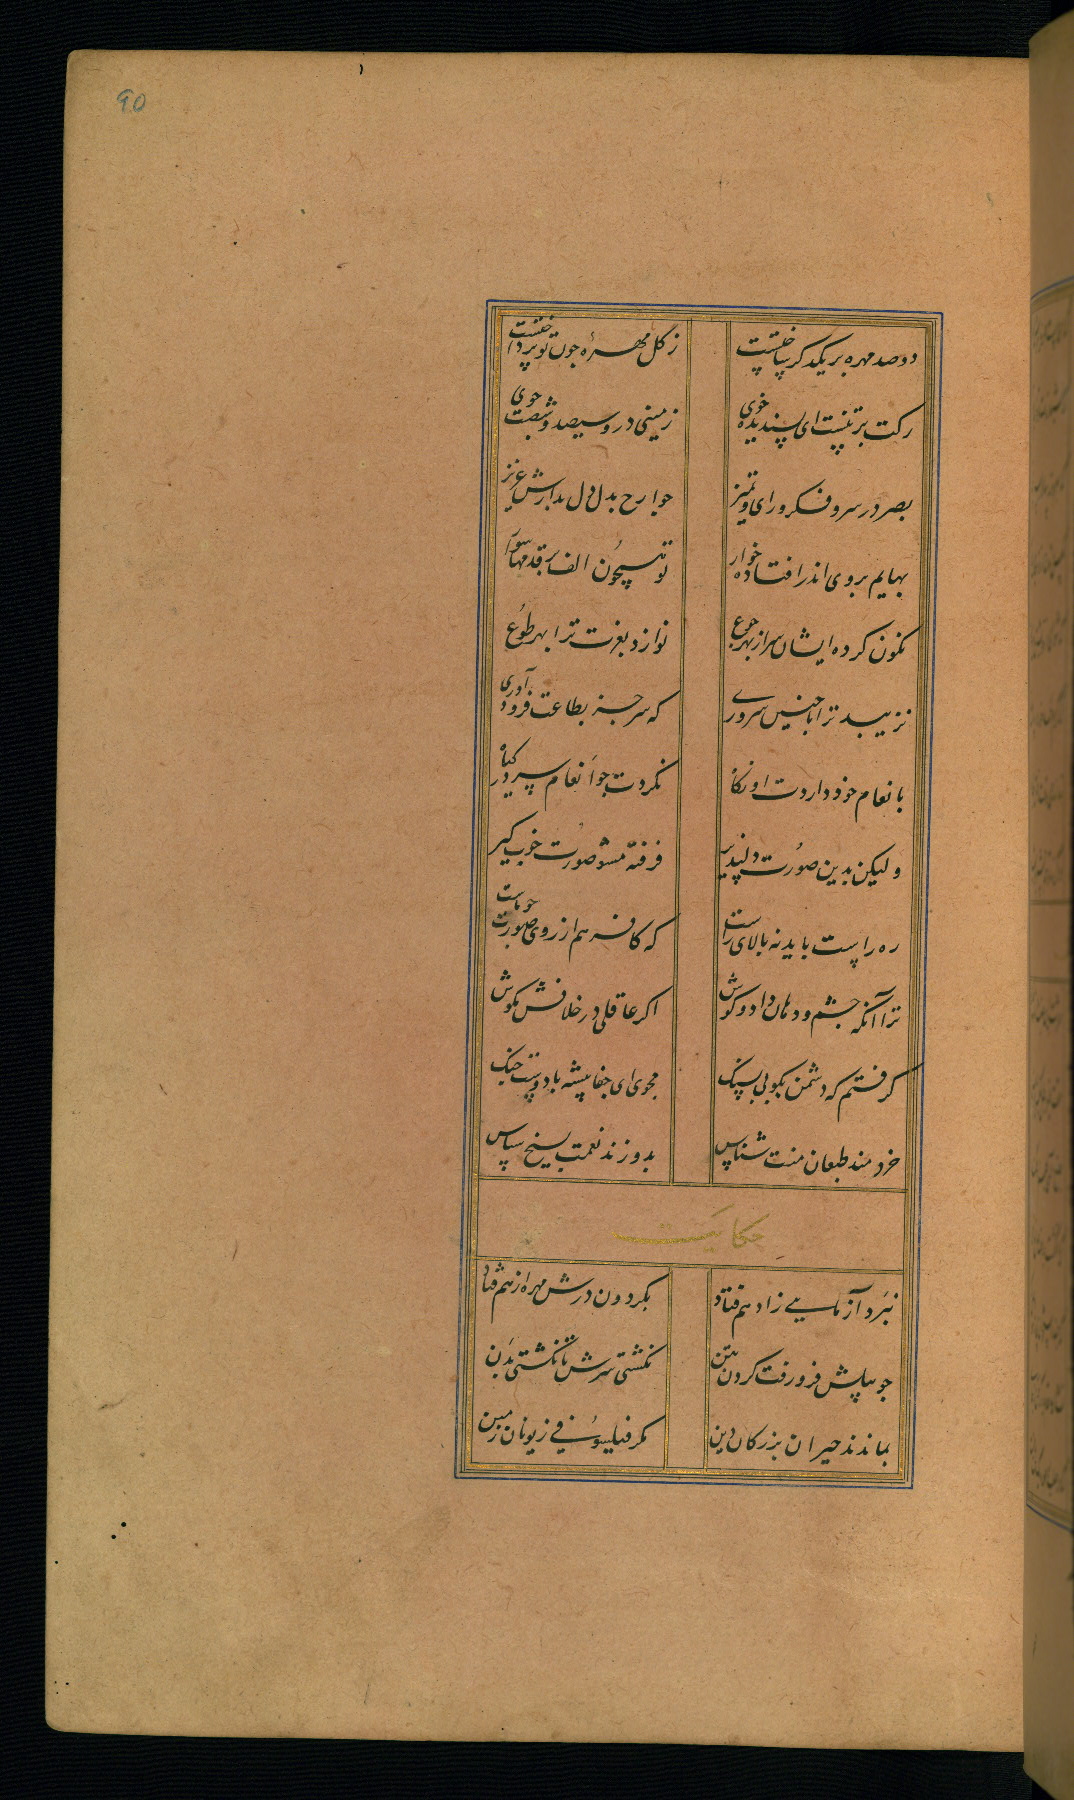 90
دوصد مهره بر یکدکر ساختست زکل مهرهٔ جون تو پرداختست
رکت بر تنست ای پسندیده خوی زمینی درو سیصد و شصت جوی
بصر در سر و فکر و رای و تمیز جوارح بدل دل بدانش عزیز
بهایم بروی اندر افتاده خوار تو همچون الف بر قدمها سوار
نکون کرده ایشان سر از بهر جوع نوازد بعزت ترا بهر طوع
نزیبد ترا با جنین سروری که سر جز بطاعت فرود آوری
بانعام خود داردت او نکاه نکردت جو انعام سر در کیاه
ولیکن بدین صورت دلپذیر فرفته مشو صورت خوب کیر
ره راست باید نه بالای راست که کافر هم از روی صورت جو ماست
ترا آنکه جشم و دهان داد و کوش اکر عاقلی در خلافش مکوش
کرفتم که دشمن بکوبی بسنک مجوی ای جفا پیشه با دوست جنک
خردمند طبعان منت شناس بدوزند نعمت بمیخ سپاس
حکایت
نبرد آزمایی ز ادهم فتاد بکردون درش مهره از هم فتاد
جو پیلش فرو رفت کردن بتن نکشتی سرش تا نکشتی بدن
بماندند حیران بزرکان دین مکر فیلسوفی ز یونان زمین